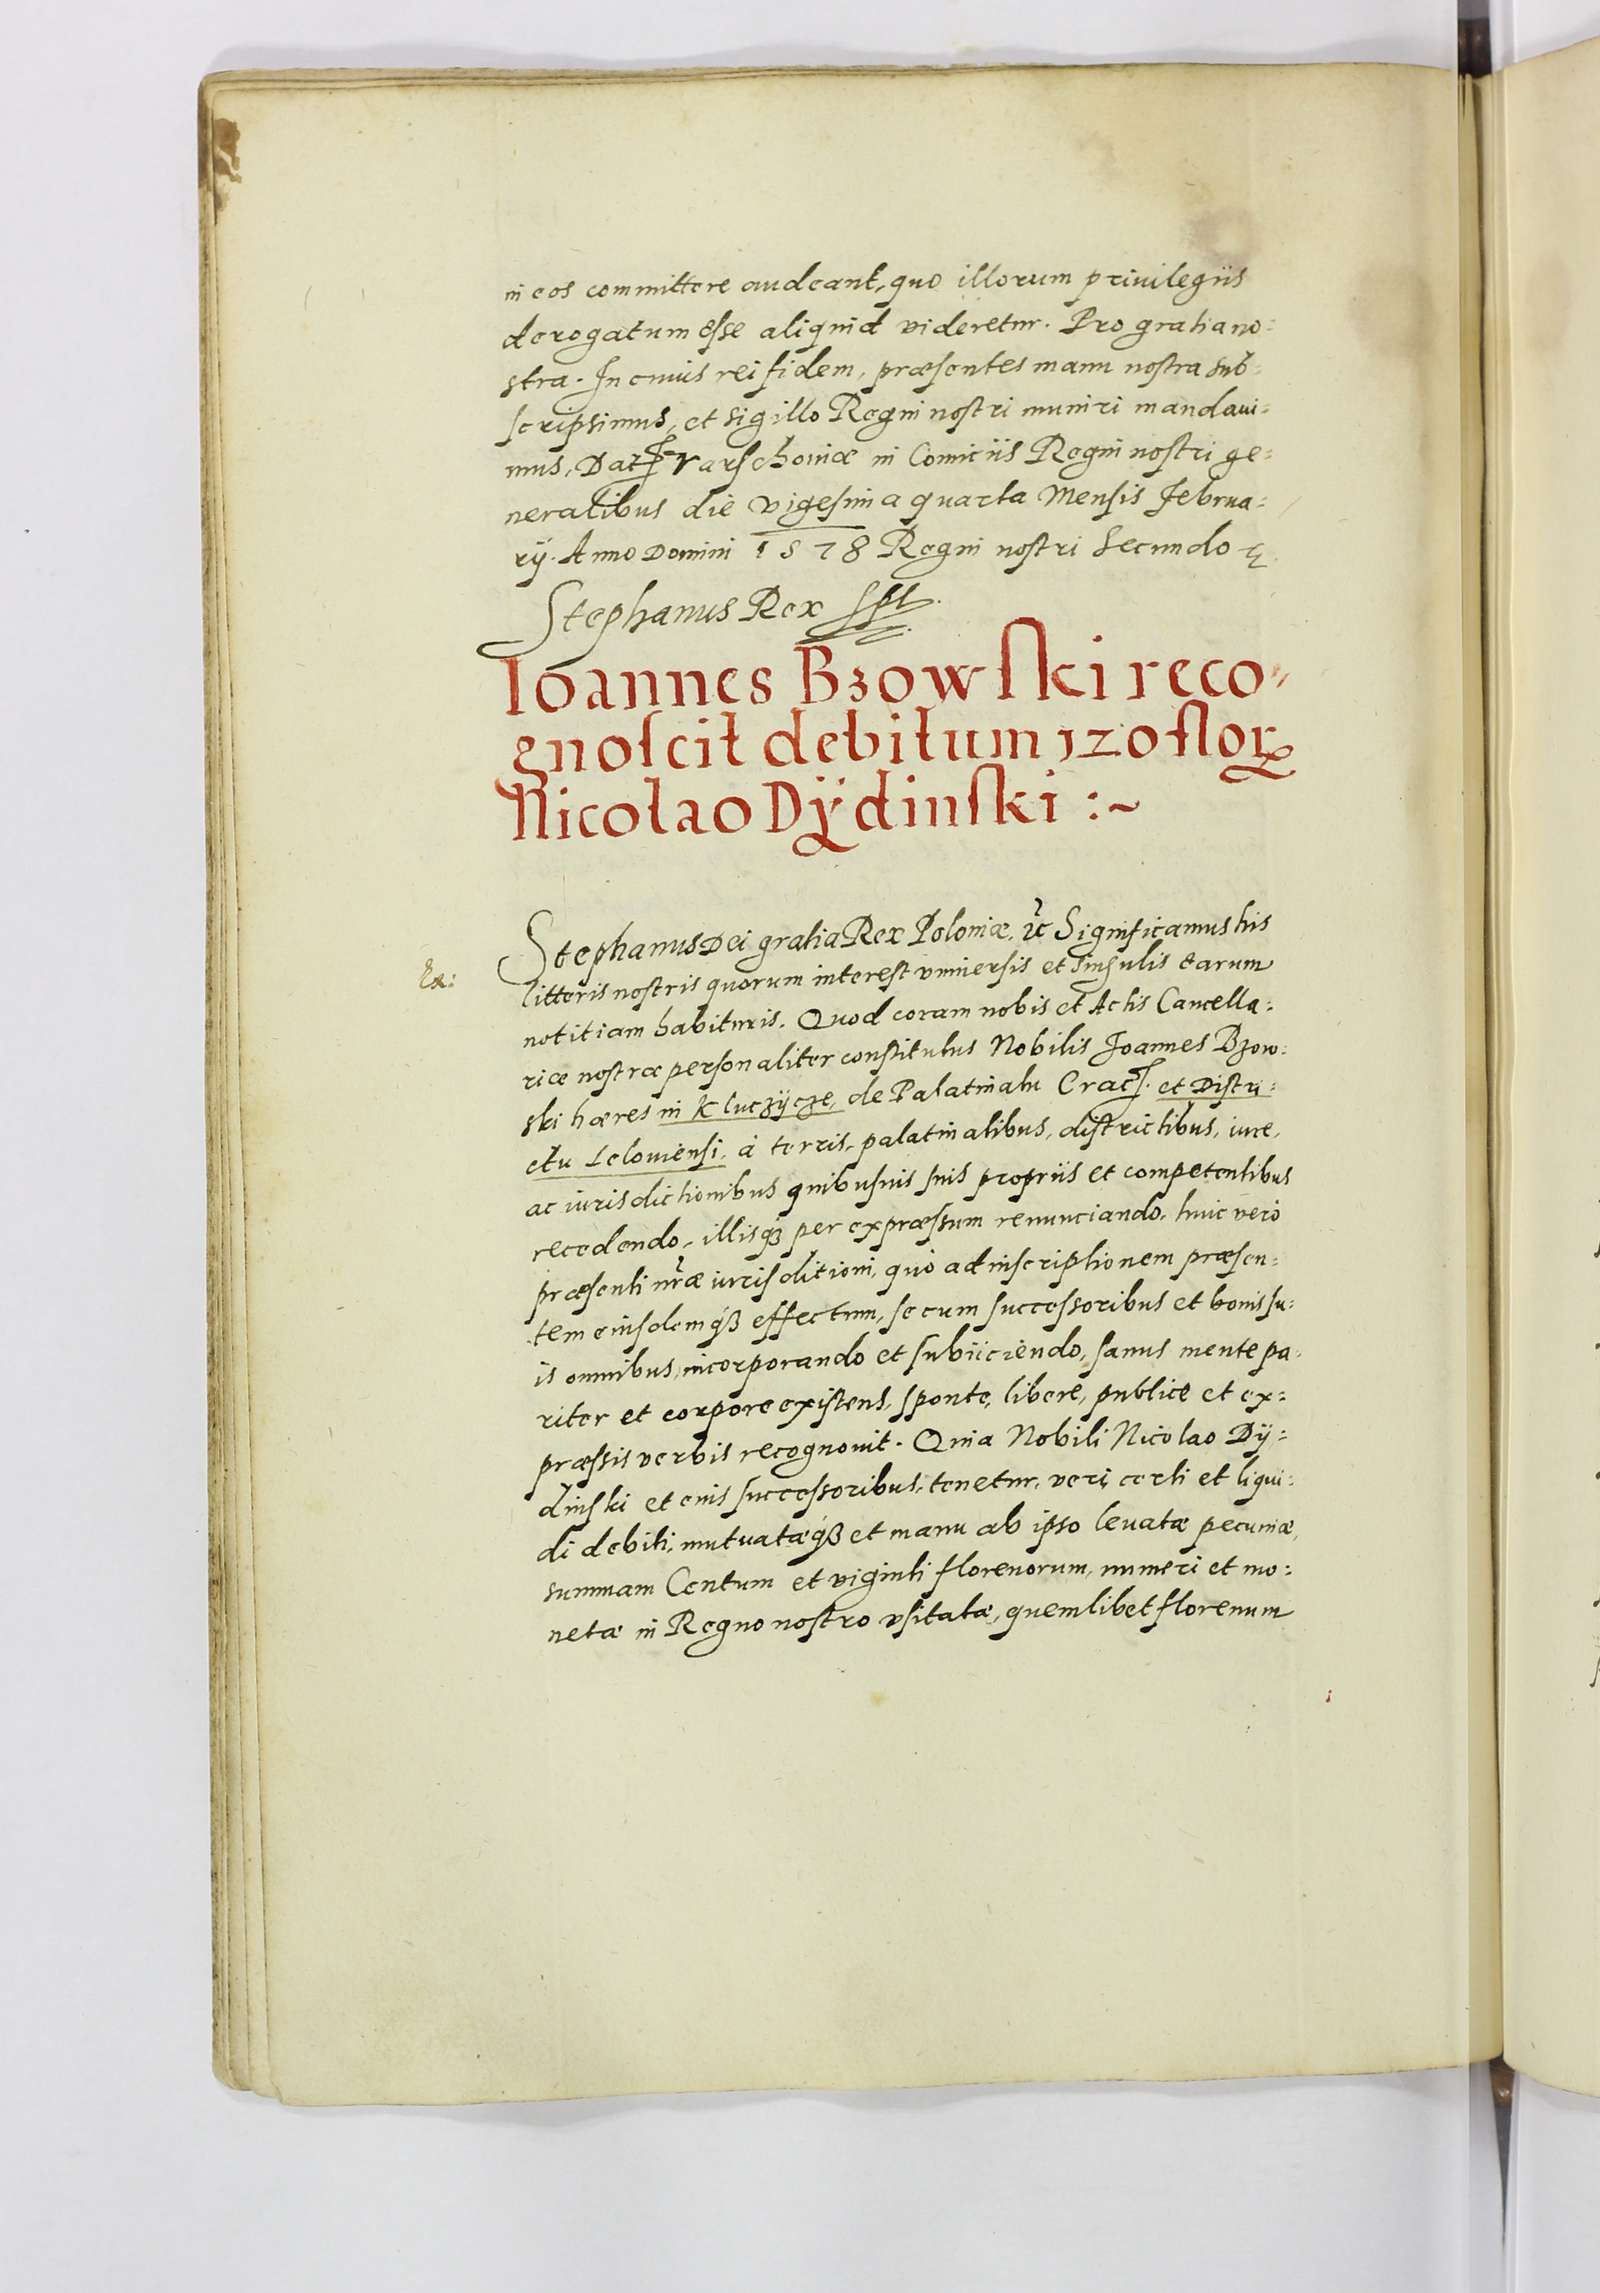 in eos committere audeant, quo illorum priuilegiis
derogatum esse aliquid videretur. Pro gratia no=
stra. In cuius rei fidem, præsentes manu nostra sub=
scripsimus, et sigillo Regni nostri muniri mandaui=
mus. Dat Varschouiæ in Comiciis Regni nostri ge=
neralibus die vigesima quarta Mensis Februa=
rij. Anno Domini 1578 Regni nostri Secundo
Stephanus Rex sst.
Ioannes Bzowski reco=
gnoscit debitum 120 flor
Nicolao Dÿdinski :~
Stephanus Dei gratia Rex Poloniæ. &c Significamus his
Ex:
litteris nostris quorum interest vniuersis et singulis earum
notitiam habituris. Quod coram nobis et Actis Cancella=
riæ nostræ personaliter constitutus Nobilis Joannes Bzow=
ski hæres in Kluczÿcze, de Palatinatu Crac. et Distri=
ctu Leloviensi, à terris, palatinatibus, districtibus, iure,
ac iurisdictionibus quibusuis suis propriis et competentibus
recedendo, illisq3 per expræssum renunciando, huic vero
præsenti nræ iurisditioni, quo ad inscriptionem præsen=
tem eiusdemq3 effectum, se cum successoribus et bonis su=
is omnibus, incorporando et subiiciendo, sanus mente pa=
riter et corpore existens, sponte, libere, publice et ex=
præssis verbis recognouit. Quia Nobili Nicolao Dÿ=
dinski et euis successoribus, tenetur, veri, certi et liqui=
di debiti, mutuatæq3 et manu ab ipso leuatæ pecuniæ,
summam Centum et viginti florenorum, numeri et mo=
netæ in Regno nostro vsitatæ, quemlibet florenum